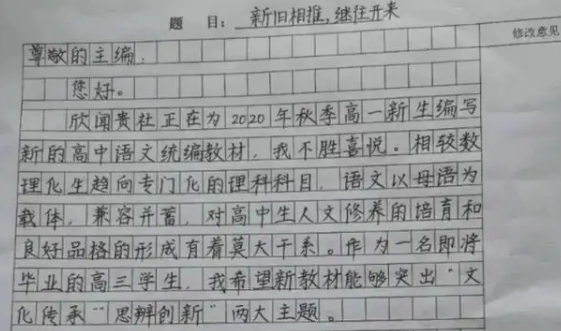 题 目: 新旧相推,继往开来
修改意见
尊敬的主编.
您好。
欣闻贵社正在为2020年秋季高一新生编写
新的高中语文统编教材,我不胜喜悦。相较数
理化生趋向专门化的理科科目,语文以母语为
载体,兼容并蓄,对高中生人文修养的培育和
良好品格的形成有着莫大干系。作为一名即将
毕业的高三学生,我希望新教材能够突出“文
化传承”“思辨创新”两大主题。